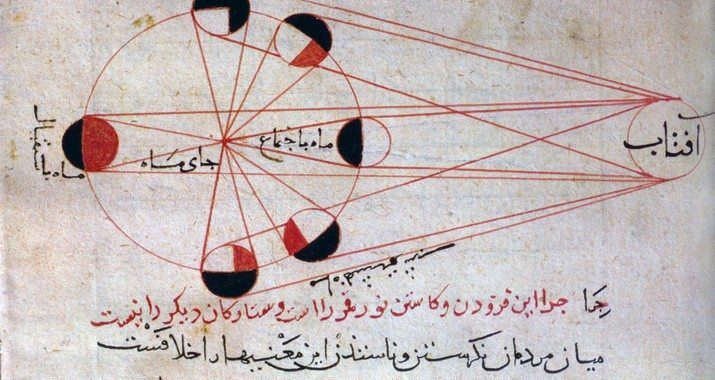 افتاب
ماه باجتماع
جای ماه
ماه باستقبال
چرا جرا این فزودن و کاستن نور قمر را است و ستارکان دیکر را نیست
میان مردمان این معنیها را خلافست